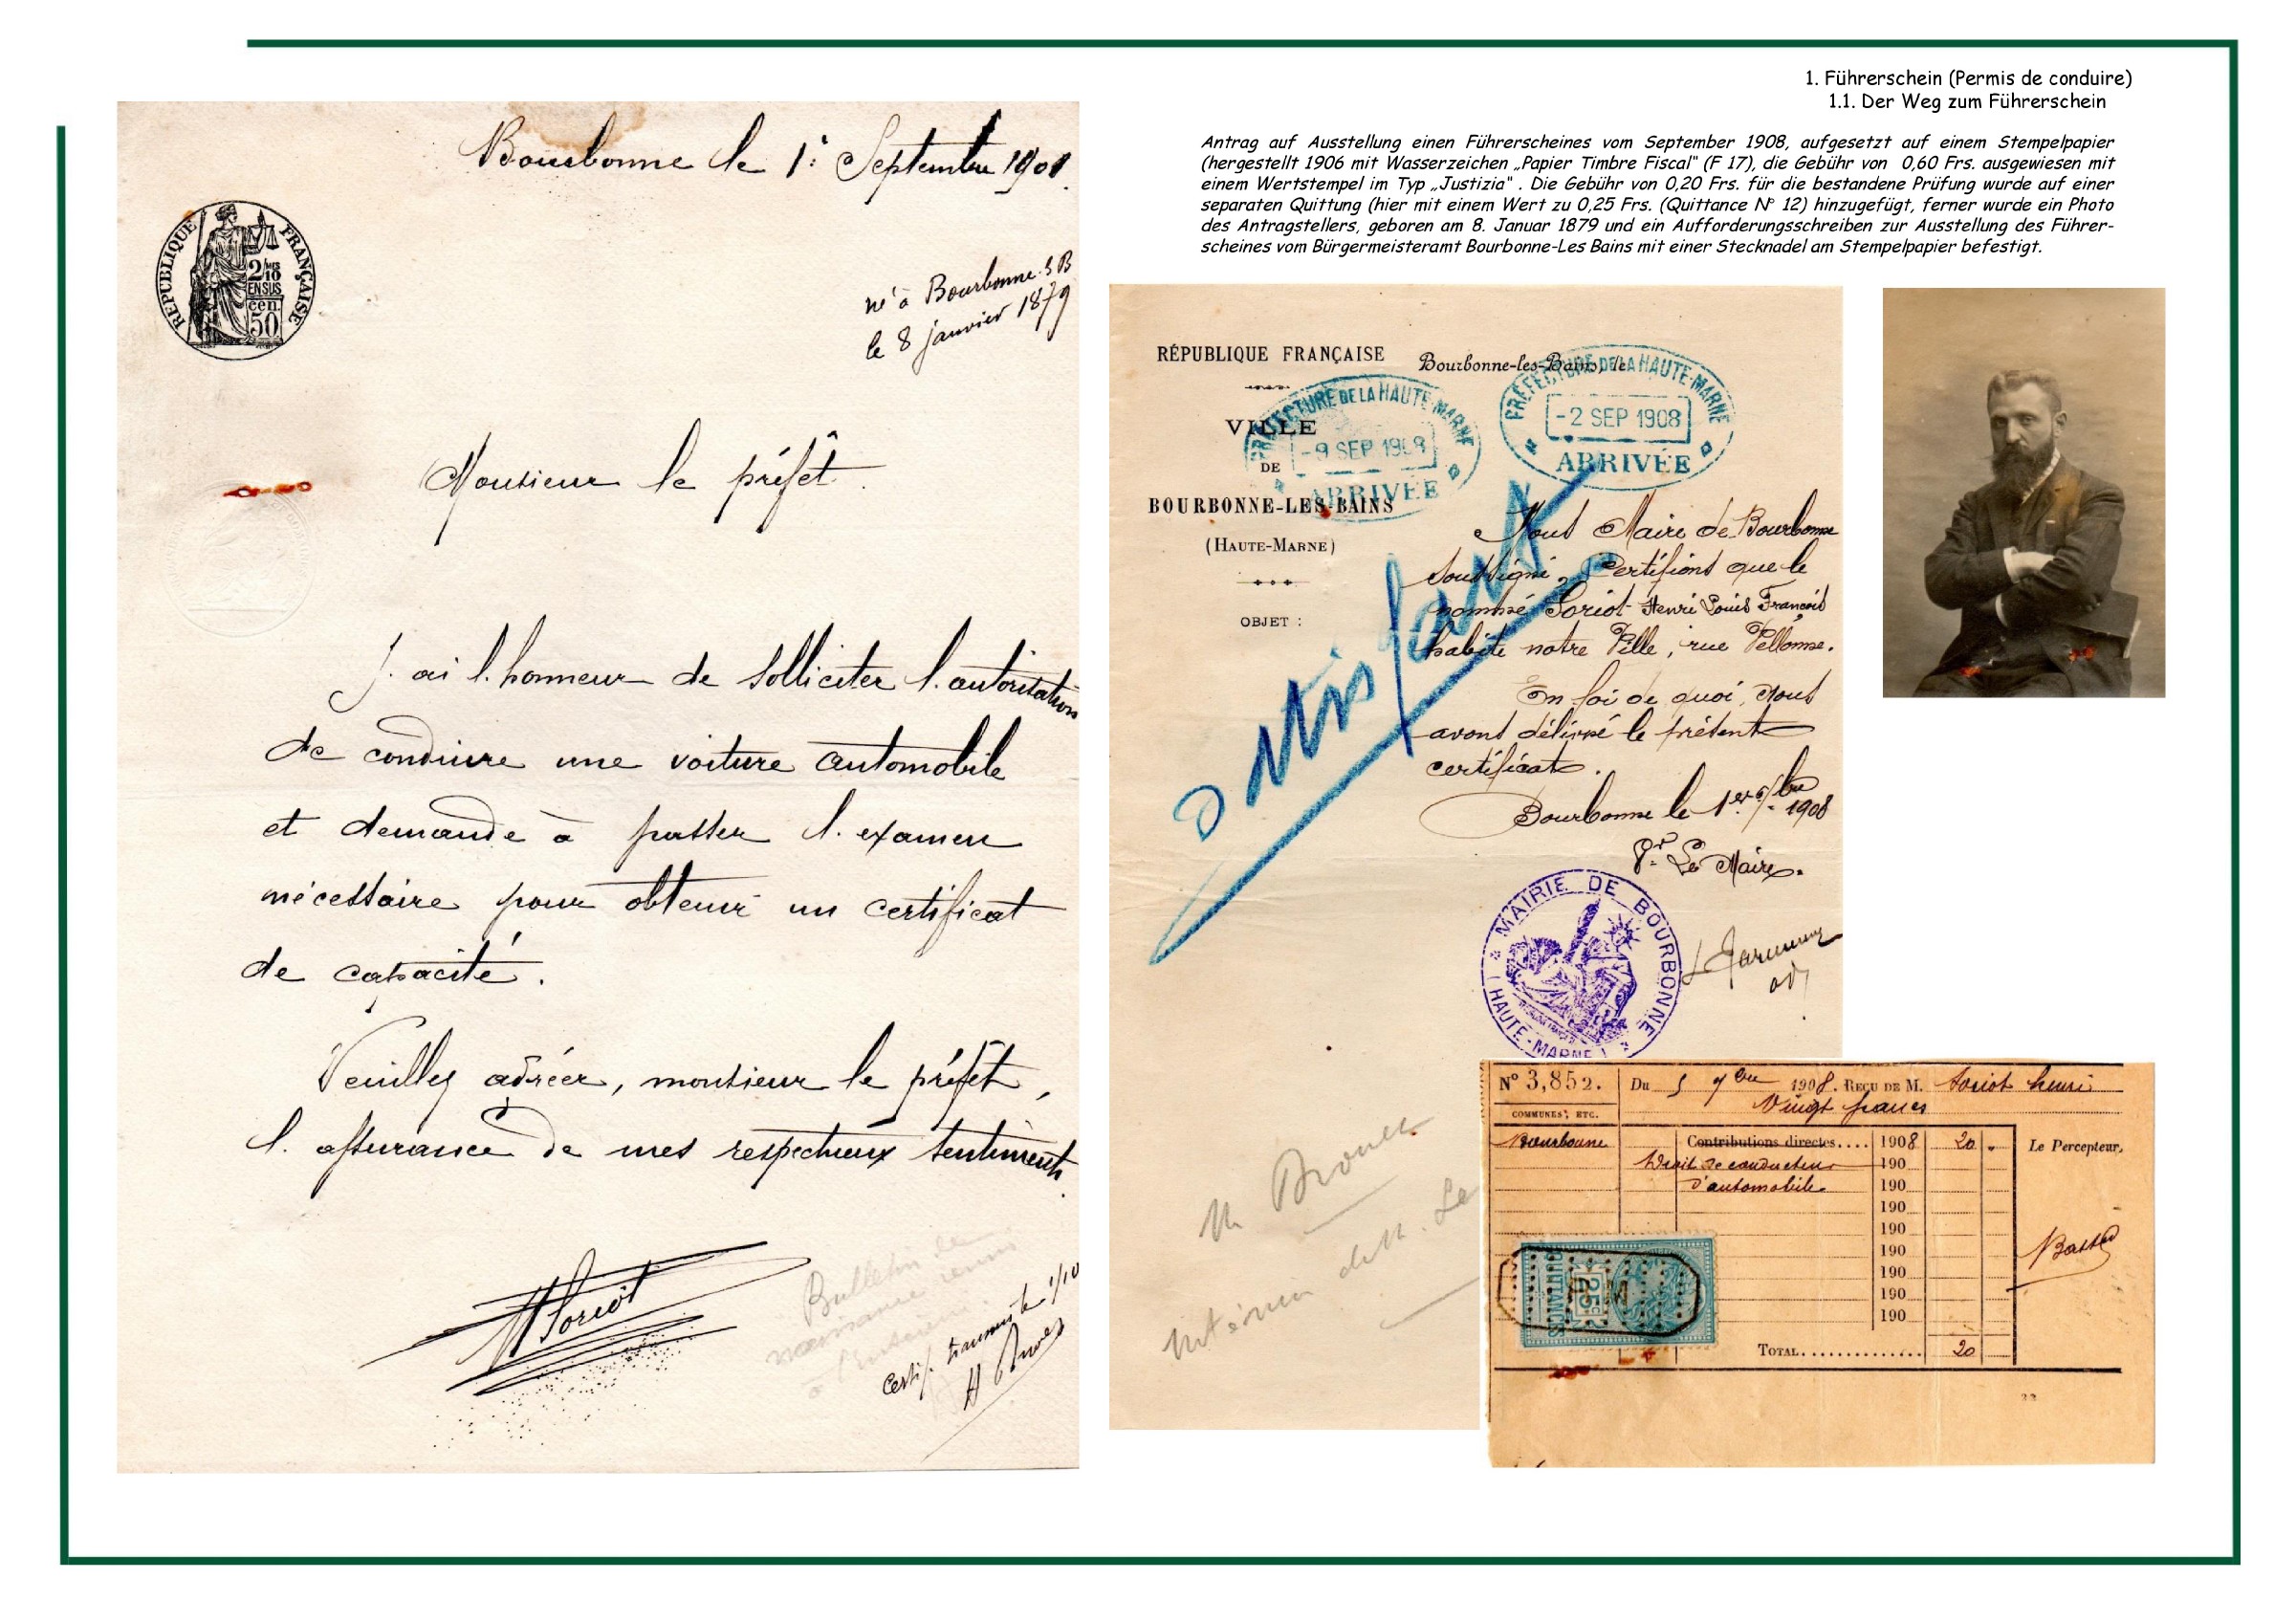 1. Führerschein (Permis de conduire)
1.1. Der Weg zum Führerschein
Antrag auf Ausstellung einen Führerscheines vom September 1908, aufgesetzt auf einem Stempelpapier
(hergestellt 1906 mit Wasserzeichen „Papier Timbre Fiscal" (F 17), die Gebühr von 0,60 Frs. ausgewiesen mit
einem Wertstempel im Typ „Justizia" . Die Gebühr von 0,20 Frs. für die bestandene Prüfung wurde auf einer
separaten Quittung (hier mit einem Wert zu 0,25 Frs. (Quittance N° 12) hinzugefügt, ferner wurde ein Photo
des Antragstellers, geboren am 8. Januar 1879 und ein Aufforderungsschreiben zur Ausstellung des Führer-
scheines vom Bürgermeisteramt Bourbonne-Les Bains mit einer Stecknadel am Stempelpapier befestigt.
Bourbonne le 1: Septembre 1908
RÉPUBLIQUE FRANÇAISE
2/10
EN SUS
cen.
50
né à Bourbonne-l-B
le 8 janvier 1879
Monsieur le préfêt.
J. ai l. honneur de solliciter l. autorisation
de conduire une voiture automobile
et demande à passer l. examen
nécessaire pour obtenir un certificat
de capacité.
Veuillez agréer, monsieur le préfêt,
l. assurance de mes respectueux sentiments.
H Soriot
Bulletin de
naissance
Certif. transmis le 1/10
RÉPUBLIQUE FRANÇAISE
VILLE
DE
BOURBONNE-LES-BAINS
(HAUTE-MARNE)
OBJET :
Bourbonne-les-Bains, le
PRÉFECTURE DE LA HAUTE-MARNE
-9 SEP 1908
ARRIVÉE
PRÉFECTURE DE LA HAUTE-MARNE
-2 SEP 1908
ARRIVÉE
Nous Maire de Bourbonne
soussigné, Certifions que le
nommé Soriot Henri Louis François
habite notre Ville, rue Vellonne.
En foi de quoi, nous
avons délivré le présent
certificat.
Bourbonne le 1er 7bre 1908
Pr. Le Maire.
MAIRIE DE BOURBONNE
( HAUTE-MARNE )
N° 3,852. Du 5 7bre 1908. REÇU DE M. Soriot henri
Vingt francs
COMMUNES, ETC.
Bourbonne Contributions directes.... 1908 20 Le Percepteur,
Droit de conducteur 190
d'automobile 190
190
190
190
190
190
190
TOTAL.............. 20
QUITTANCES
25c